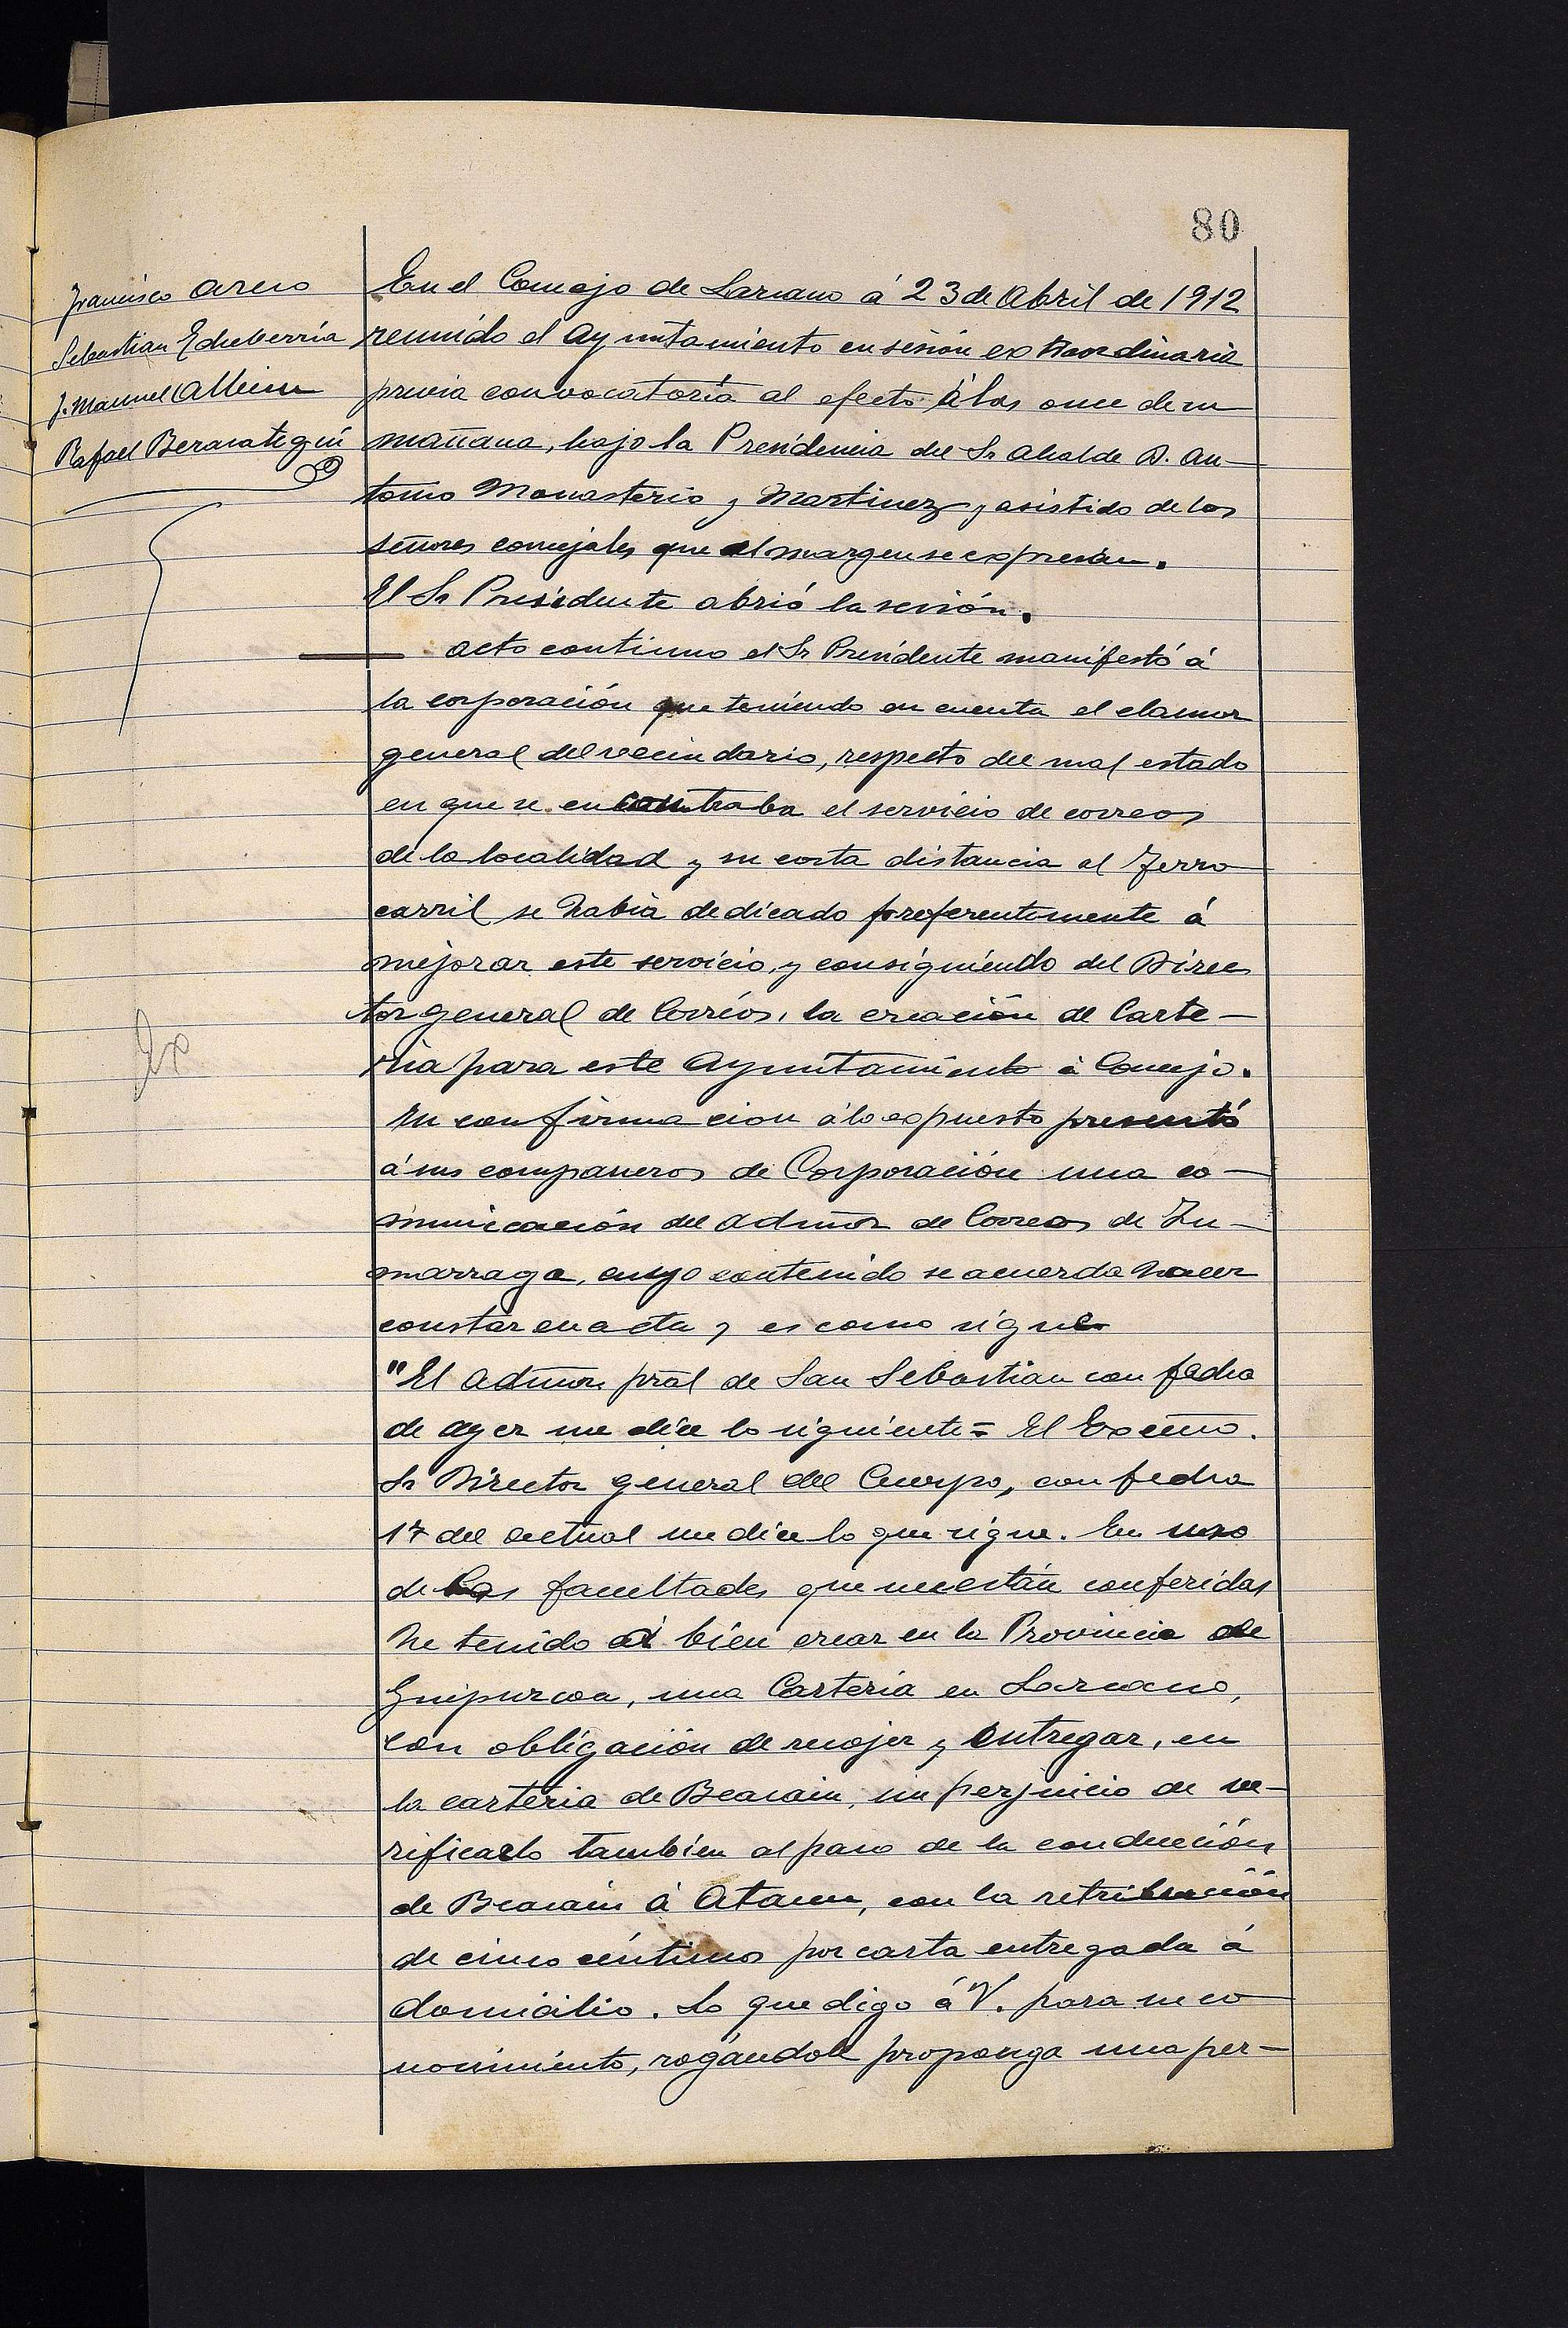 80
Francisco Arcio
Sebastian Echeberria
J. Manuel Albisu
Rafael Berasategui
En el Concejo de Lazcano á 23 de Abril de 1912
reunido el Ayuntamiento en sesión extraordinaria
previa convocatoria al efecto á las once de su
mañana, bajo la Presidencia del Sr Alcalde D. An-
tonio Monasterio y Martinez y asistido de los
señores concejales que al margen se expresan.
El Sr Presidente abrió la sesión.
Acto continuo el Sr Presidente manifestó á
la corporación que teniendo en cuenta el clamor
general del vecindario, respecto del mal estado
en que se encontraba el servicio de correos
de la localidad y su corta distancia al Ferro
carril se habia dedicado preferentemente á
mejorar este servicio, y consiguiendo del Direc
tor general de Corréos, la creación de Carte-
ria para este Ayuntamiento ó Concejo.
En confirmacion á lo expuesto presentó
á sus compañeros de Corporación una co-
municación del Admōr de Correos de Zu-
marraga, cuyo contenido se acuerda hacer
constar en acta y es como sigue
"El Admōr prāl de San Sebastian con fecha
de ayer me dice lo siguiente= El Excmo.
Sr Director general del Cuerpo, con fecha
17 del actual me dice lo que sigue. En uso
de las facultades que me están conferidas
he tenido á bien crear en la Provincia de
Guipuzcoa, una Carteria en Lazcano,
con obligación de recojer y entregar, en
la carteria de Beasain, sin perjuicio de ve-
rificarlo también al paso de la conducción
de Beasain á Ataun, con la retribución
de cinco céntimos por carta entregada á
domicilio. Lo que digo á V. para su co
nocimiento, rogándole proponga una per-